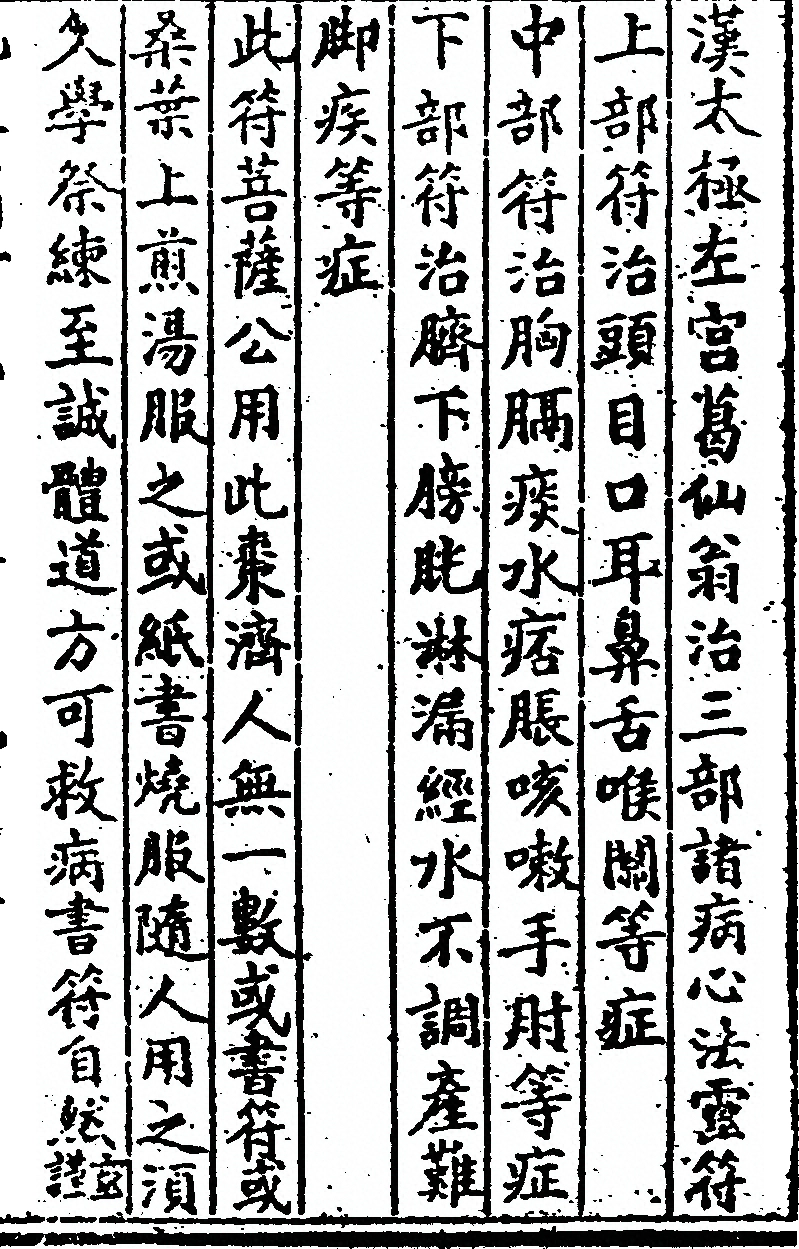 漢太極左宮葛仙翁治三部諸病心法靈符
上部符治頭目口耳鼻舌喉關等症
中部符治胸膈痰水痞脹咳嗽手肘等症
下部符治臍下膀胱淋漏經水不調產難
脚疾等症
此符菩薩公用此棗濟人無一數或書符或
桑葉上煎湯服之或紙書燒服隨人用之須
久學祭練至誠體道方可救病書符自然謹